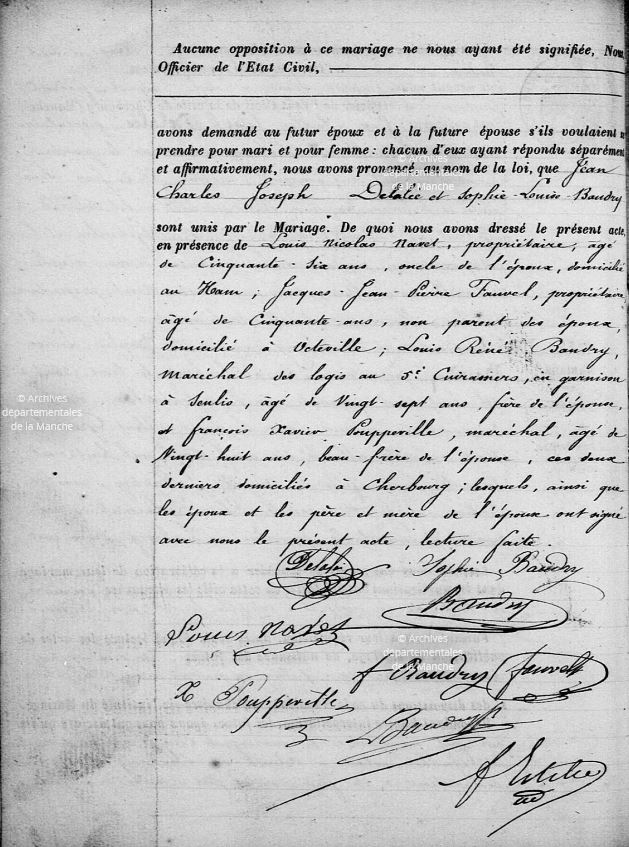 Aucune opposition à ce mariage ne nous ayant été signifiée, Nous
Officier de l'Etat Civil,
avons demandé au futur époux et à la future épouse s'ils voulaient
prendre pour mari et pour femme : chacun d'eux ayant répondu séparément
et affirmativement, nous avons prononcé au nom de la loi, que Jean
Charles Joseph Delalée et Sophie-Louise-Baudry
sont unis par le Mariage. De quoi nous avons dressé le présent acte,
en présence de Louis Nicolas Navet, propriétaire, âgé
de Cinquante-six ans, oncle de l'époux, domicilié
au Ham ; Jacques-Jean-Pierre Fauvel, propriétaire
âgé de Cinquante ans, non parent des époux,
domicilié à Octeville ; Louis Réné Baudry,
Maréchal des logis au 5e Cuirassiers, en garnison
à Senlis, âgé de Vingt-sept ans, frère de l'épouse,
et françois Xavier Poupperville, maréchal, âgé de
Vingt-huit ans, beau-frère de l'épouse, ces deux
derniers domiciliés à Cherbourg ; lesquels, ainsi que
les époux et les père et mère de l'époux ont signé
avec nous le présent acte, lecture faite.
© Archives
départementales
de la Manche
© Archives
départementales
de la Manche
Sophie Baudry
Baudry
Louis Navet
© Archives
départementales
de la Manche
Baudry fauvel
Poupperville
Baudry